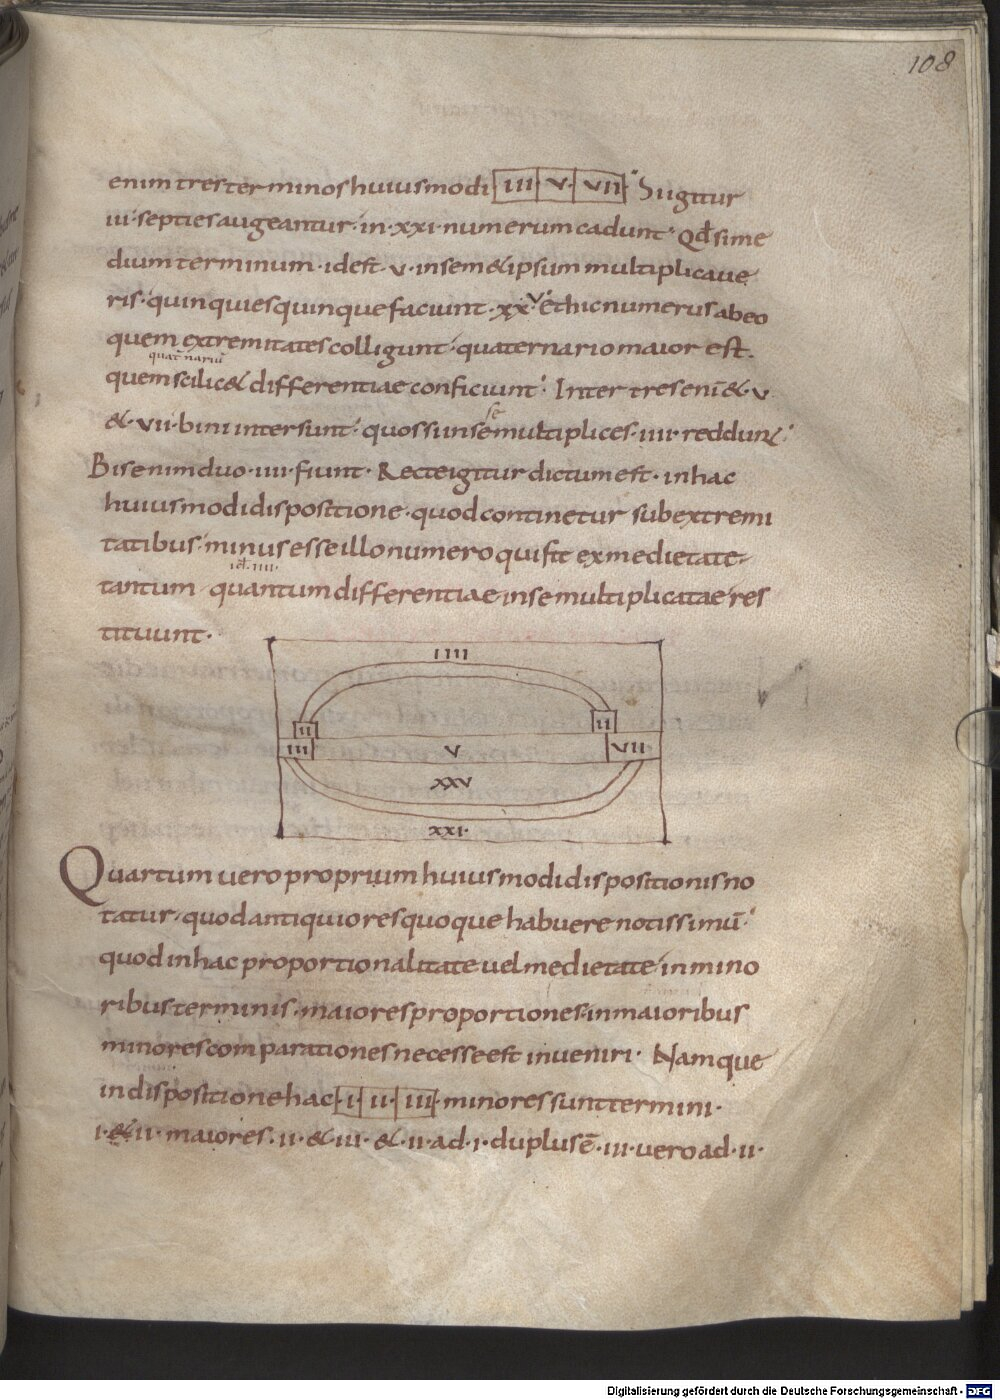 108
enim tres terminos huiusmodi III V VII Si igitur
iii· septies augeantur· in· xxi· numerum cadunt· Qđ si me
dium terminum· id est· v· in sem& ipsum multiplicaue
ris· quinquies quinque faciunt· xxv· et hic numerus ab eo
quem extremitates colligunt quaternario maior est.
quat̄nariū
quem scilic& differentiae conficiunt· Inter tres enī &· v·
se
&· vii· bini intersunt· quos si in se multiplices· iiii· reddunt·
Bis enim duo· iiii· fiunt· Recte igitur dictum est· in hac
huiusmodi dispositione· quod continetur sub extremi
tatibus· minus esse illo numero qui fit ex medietate
id· iiii·
tantum quantum differentiae in se multiplicatae res
tituunt·
IIII
II II
III V VII
XXV
XXI·
Quartum uero proprium huiusmodi dispositionis no
tatur· quod antiquiores quoque habuere notissimū·
quod in hac proportionalitate uel medietate in mino
ribus terminis· maiores proportiones in maioribus
minores comparationes necesse est inueniri· Namque
in dispositione hac ·I· II· III· minores sunt termini·
i· &· ii· maiores· ii· &· iii· &· ii· ad· i· duplus ē· iii· uero ad· ii·
Digitalisierung gefördert durch die Deutsche Forschungsgemeinschaft - DFG